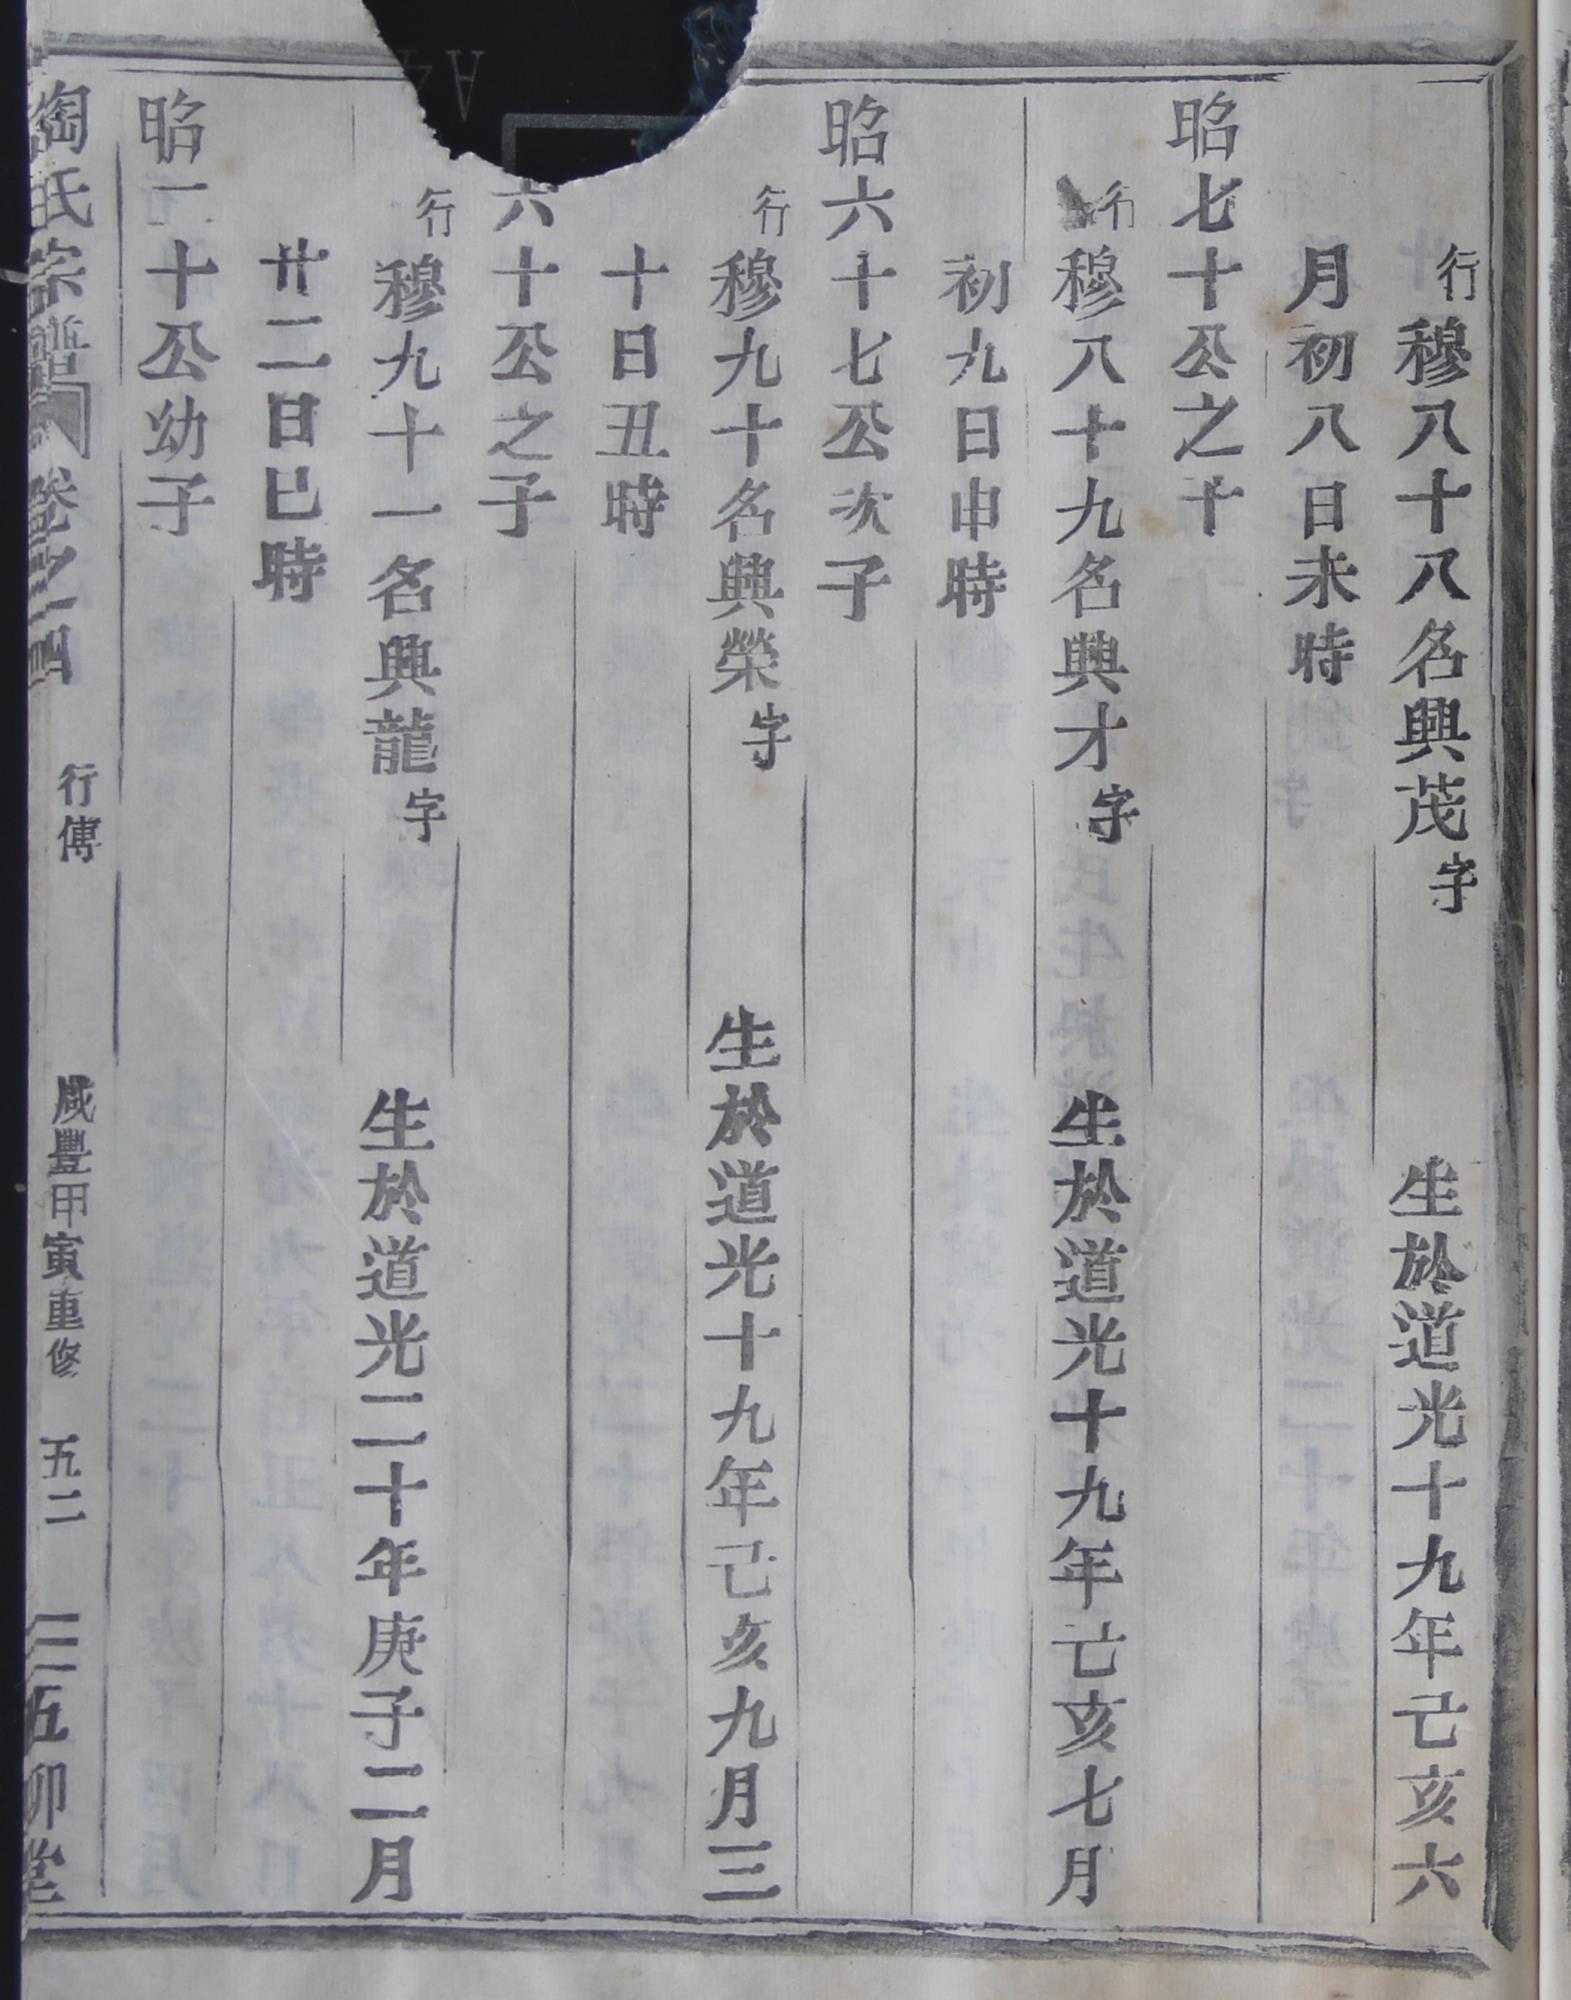 行穆八十八名興茂字 生於道光十九年己亥六
月初八日未時
昭七十公之子
行穆八十九名興才字 生於道光十九年己亥七月
初九日申時
昭六十七公次子
行穆九十名興榮字 生於道光十九年己亥九月三
十日丑時
六十公之子
行穆九十一名興龍字 生於道光二十年庚子二月
廿二日巳時
昭一十公幼子
陶氏宗譜 卷之四 行傳 咸豐甲寅重修 五二 五柳堂